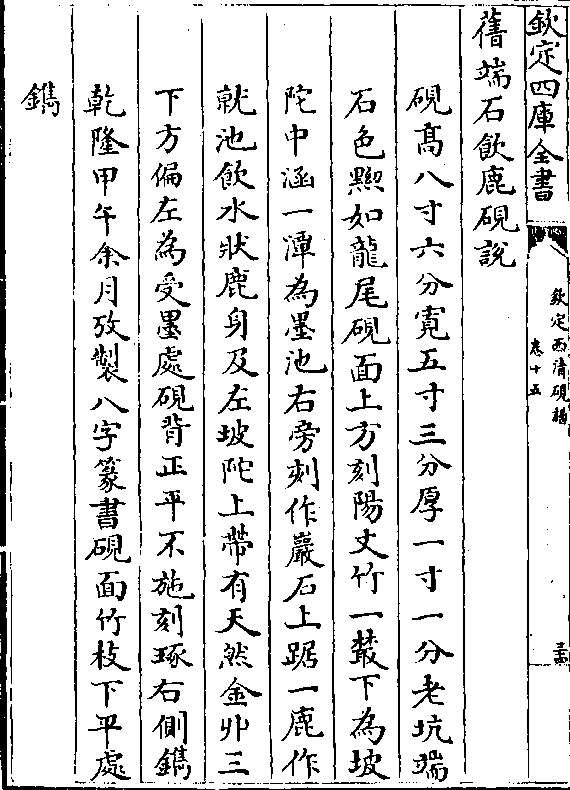 欽定四庫全書
欽定西清硯譜
卷十五
舊端石飲鹿硯說
硯髙八寸六分寛五寸三分厚一寸一分老坑端
石色黝如龍尾硯面上方刻陽文竹一叢下為坡
陀中涵一潭為墨池右旁刻作巖石上踞一鹿作
就池飲水狀鹿身及左坡陀上帶有天然金星三
下方偏左為受墨處硯背正平不施刻琢右側鐫
乾隆甲午余月攷製八字篆書硯面竹枝下平處
鐫